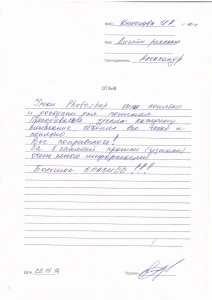 ФИО
Курс
Преподаватель Александр
ОТЗЫВ
Уроки Photoshop
и доступны для понимания
Преподаватель уделял каждому
внимание, объяснял все чётко и
понятно.
Все понравилось!
За 8 занятий прошли (узнали)
очень много информации
Большое спасибо !!!
Дата 25.11.14
Подпись